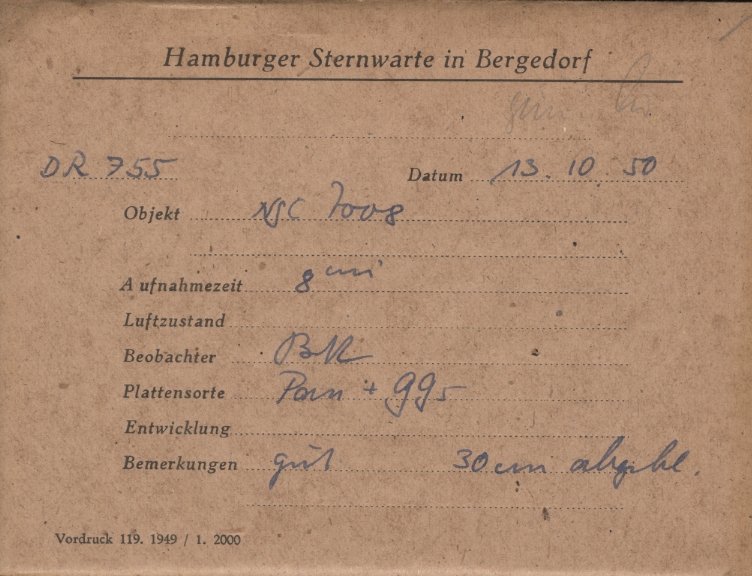 Hamburger Sternwarte in Bergedorf
DR 755 Datum 13. 10. 50
Objekt NGC 7008
Aufnahmezeit 8 min
Luftzustand
Beobachter
Plattensorte Pan +
Entwicklung
Bemerkungen gut 30 cm abgebl.
Vordruck 119. 1949 / 1. 2000